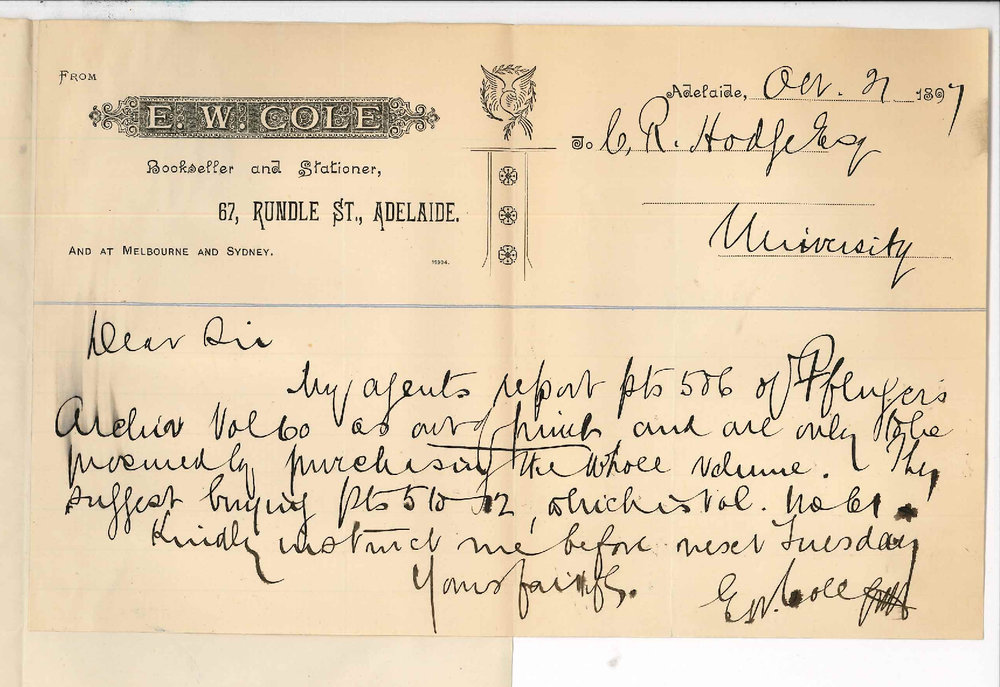 FROM
E. W. COLE
Bookseller and Stationer,
67, RUNDLE ST., ADELAIDE.
AND AT MELBOURNE AND SYDNEY.
Adelaide, Oct. 21 1897
To C. R. Hodge Esq
University
Dear Sir
My agents report pts 5 & 6 of Pflugers
Archiv Vol 60 as out of print, and are only to be
procured by purchasing the whole volume. They
suggest buying pts 5 to 12, which is Vol. No 61.
Kindly instruct me before next Tuesday
Yours faithfly.
E W. Cole